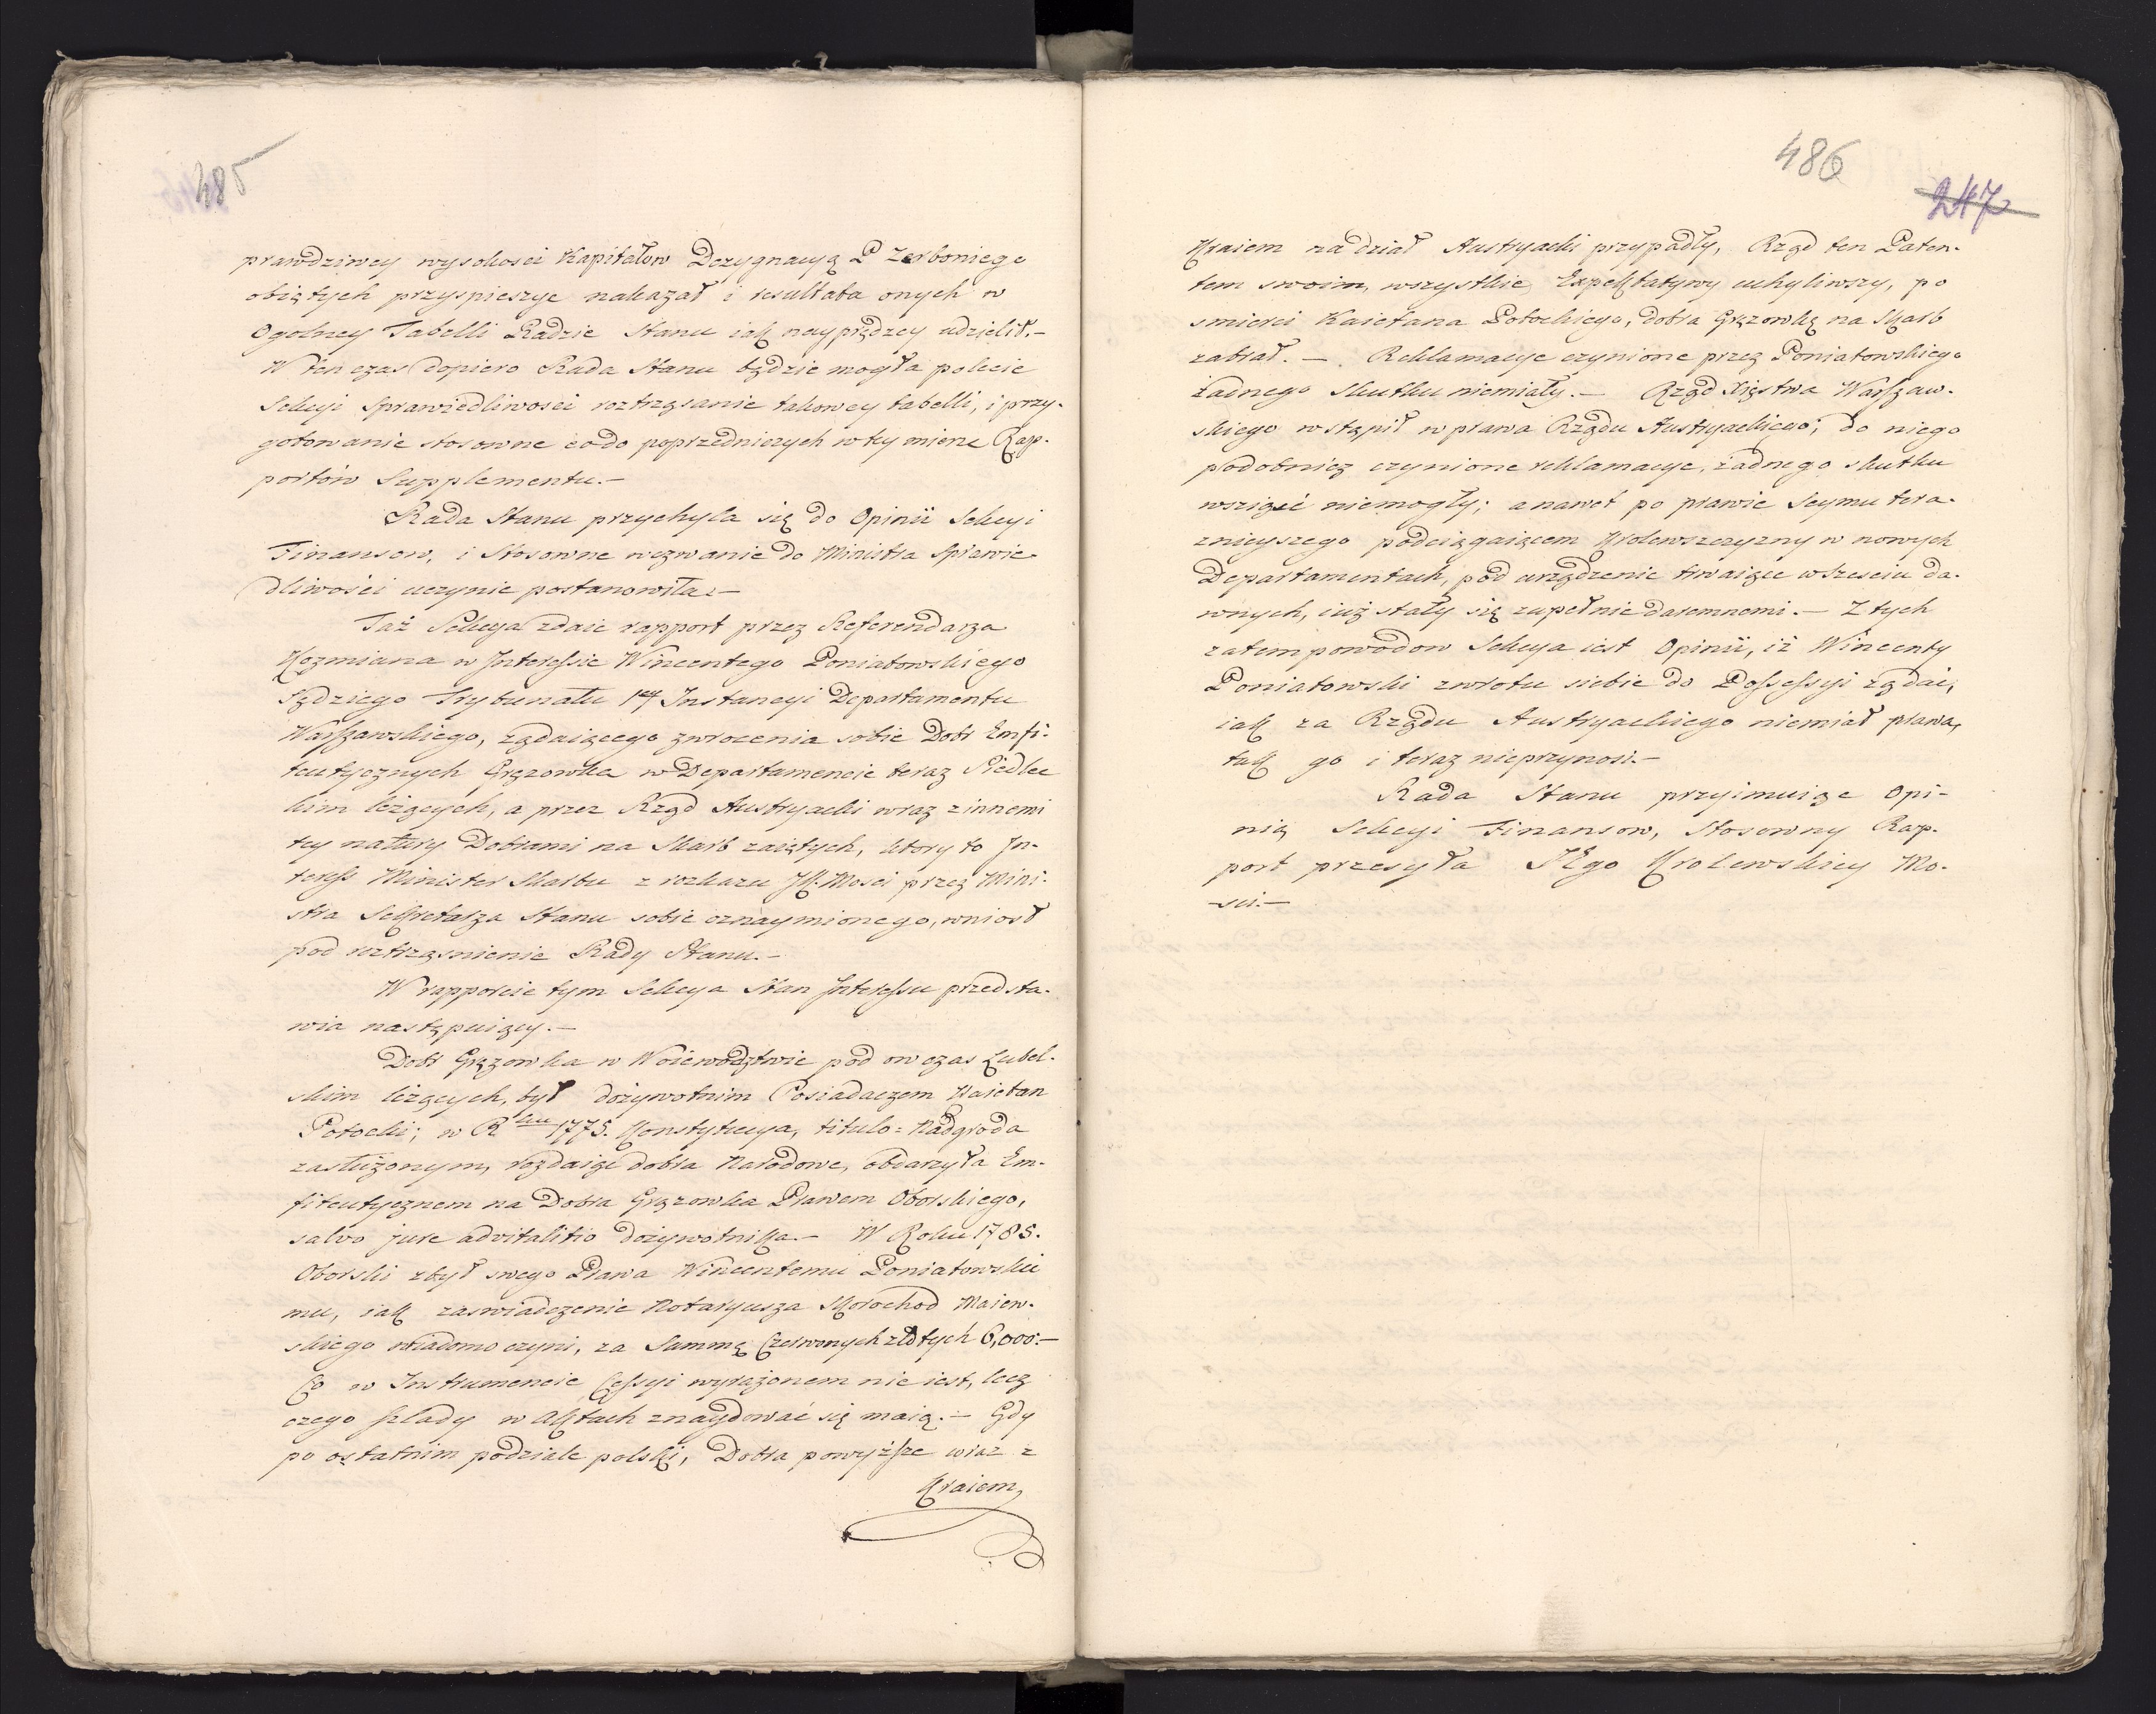 485
prawdziwey wysokosci Kapitałow Dezygnacyą P Zerboniego
obiętych przyspieszyc nakazał i resultata onych w
Ogolney Tabelli Radzie Stanu iak nayprędzey udzielił.-
W ten czas dopiero Rada Stanu będzie mogła polecic
Sekcyi Sprawiedliwosci roztrząsanie takowey tabelli, i przy-
gotowanie stosowne co do poprzedniczych w tey mierze Rap-
portów Supplementu.-
Rada Stanu przychyla się do Opinii Sekcyi
Finansow, i Stosowne wezwanie do Ministra Sprawie-
dliwości uczynic postanowiła.-
Taż Sekcya zdaie rapport przez Referendarza
Kozmiana w Interessie Wincentego Poniatowskiego
Sędziego Trybunału 1ey Instancyi Departamentu
Warszawskiego, żądaiącego zwrocenia sobie Dobr Emfi-
teutycznych Gręzowka w Departamencie teraz Siedlec
kim leżących, a przez Rząd Austryacki wraz z innemi
tey natury Dobrami na Skarb zaiętych, ktory to In-
teress Minister Skarbu z rozkazu JK: Mosci przez Mini-
stra Sekretarza Stanu sobie oznaymionego, wniosł
pod roztrząsnienie Rady Stanu.-
W rapporcie tym Sekcya Stan Interessu przedsta-
wia następuiący.-
Dobr Gręzowka w Woiewodztwie pod ow czas Lubel-
skim leżących, był dożywotnim Posiadaczem Kaietan
Potocki; w Rku 1775. Konstytucya, titulo = Nadgroda
zasłużonym, rozdaiąc dobra Narodowe, obdarzyła Em-
fiteutycznem na Dobra Gręzowka Prawem Oborskiego,
salvo jure advitalitio dożywotnika.- W Roku 1785.
Oborski zbył swego Prawa Wincentemu Poniatowskie
mu, iak zaswiadczenie Notaryusza Skorochod Maiew-
skiego wiadomo czyni, za Summę Czerwonych złotych 6,000.-
Co w Instrumencie Cessyi wyrażonem nie iest, lecz
czego szlady w Aktach znaydować się maią.- Gdy
po ostatnim podziale polski, Dobra powyższe wraz z
Kraiem,
486
247
Kraiem na dział Austryacki przypadły, Rząd ten Paten-
tem swoim, wszystkie Expektatywy uchyliwszy, po
smierci Kaietana Potockiego, dobra Gręzowkę na Skarb
zabrał.- Reklamacye czynione przez Poniatowskiego
żadnego skutku niemiały.- Rząd Xięstwa Warszaw-
skiego wstąpił w prawa Rządu Austryackiego; do niego
podobnież czynione reklamacye, żadnego skutku
wsziąść niemogły; a nawet po prawie Seymu tera-
znieyszego podciągaiącem Krolewszczyzny w nowych
Departamentach, pod urządzenie trwaiące w Szesciu da-
wnych, iuż stały się zupełnie daremnemi.- Z tych
zatem powodow Sekcya iest Opinii, iż Wincenty
Poniatowski zwrotu siebie do Possessyi żądać,
iak za Rządu Austryackiego niemiał prawa,
tak go i teraz nieprzynosi.-
Rada Stanu przyimuiąc Opi-
nią Sekcyi Finansow, Stosowny Rap-
port przesyła JEgo Krolewskiey Mo-
sci.-